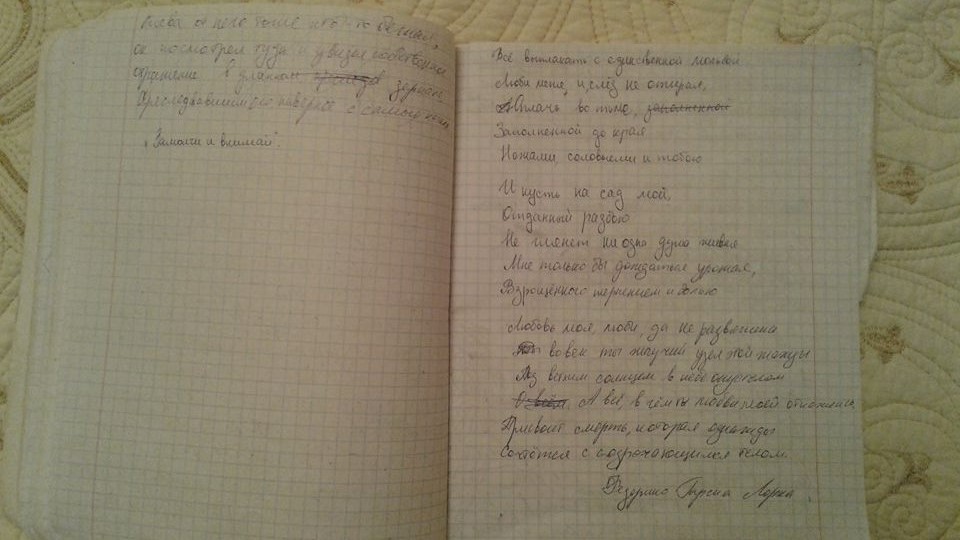 слева от него тоже кто-то
он посмотрел туда и увидел собственное
отражение в гладком зеркале
преследовавшим его наверное с самого
„Замолчи и внимай“.
Всё выплакать с единственной мольбой
Люби меня, и, слёз не отирая,
Оплачь во тьме, заполненной
Заполненной до края
Ножами, соловьями и тобою
И пусть на сад мой,
Отданный разбою
Не глянет ни одна душа живая
Мне только бы дождаться урожая,
Взрощённого терпением и болью
Любовь моя, люби, да не развяжешь
вовек ты жгучий узел этой жажды
ветхим солнцем в небе опустелом
А всё, в чём ты любви моей откажешь,
Присвоит смерть, которая однажды
Сочтётся с содрогающимся телом.
Федерико Гарсиа Лорка.